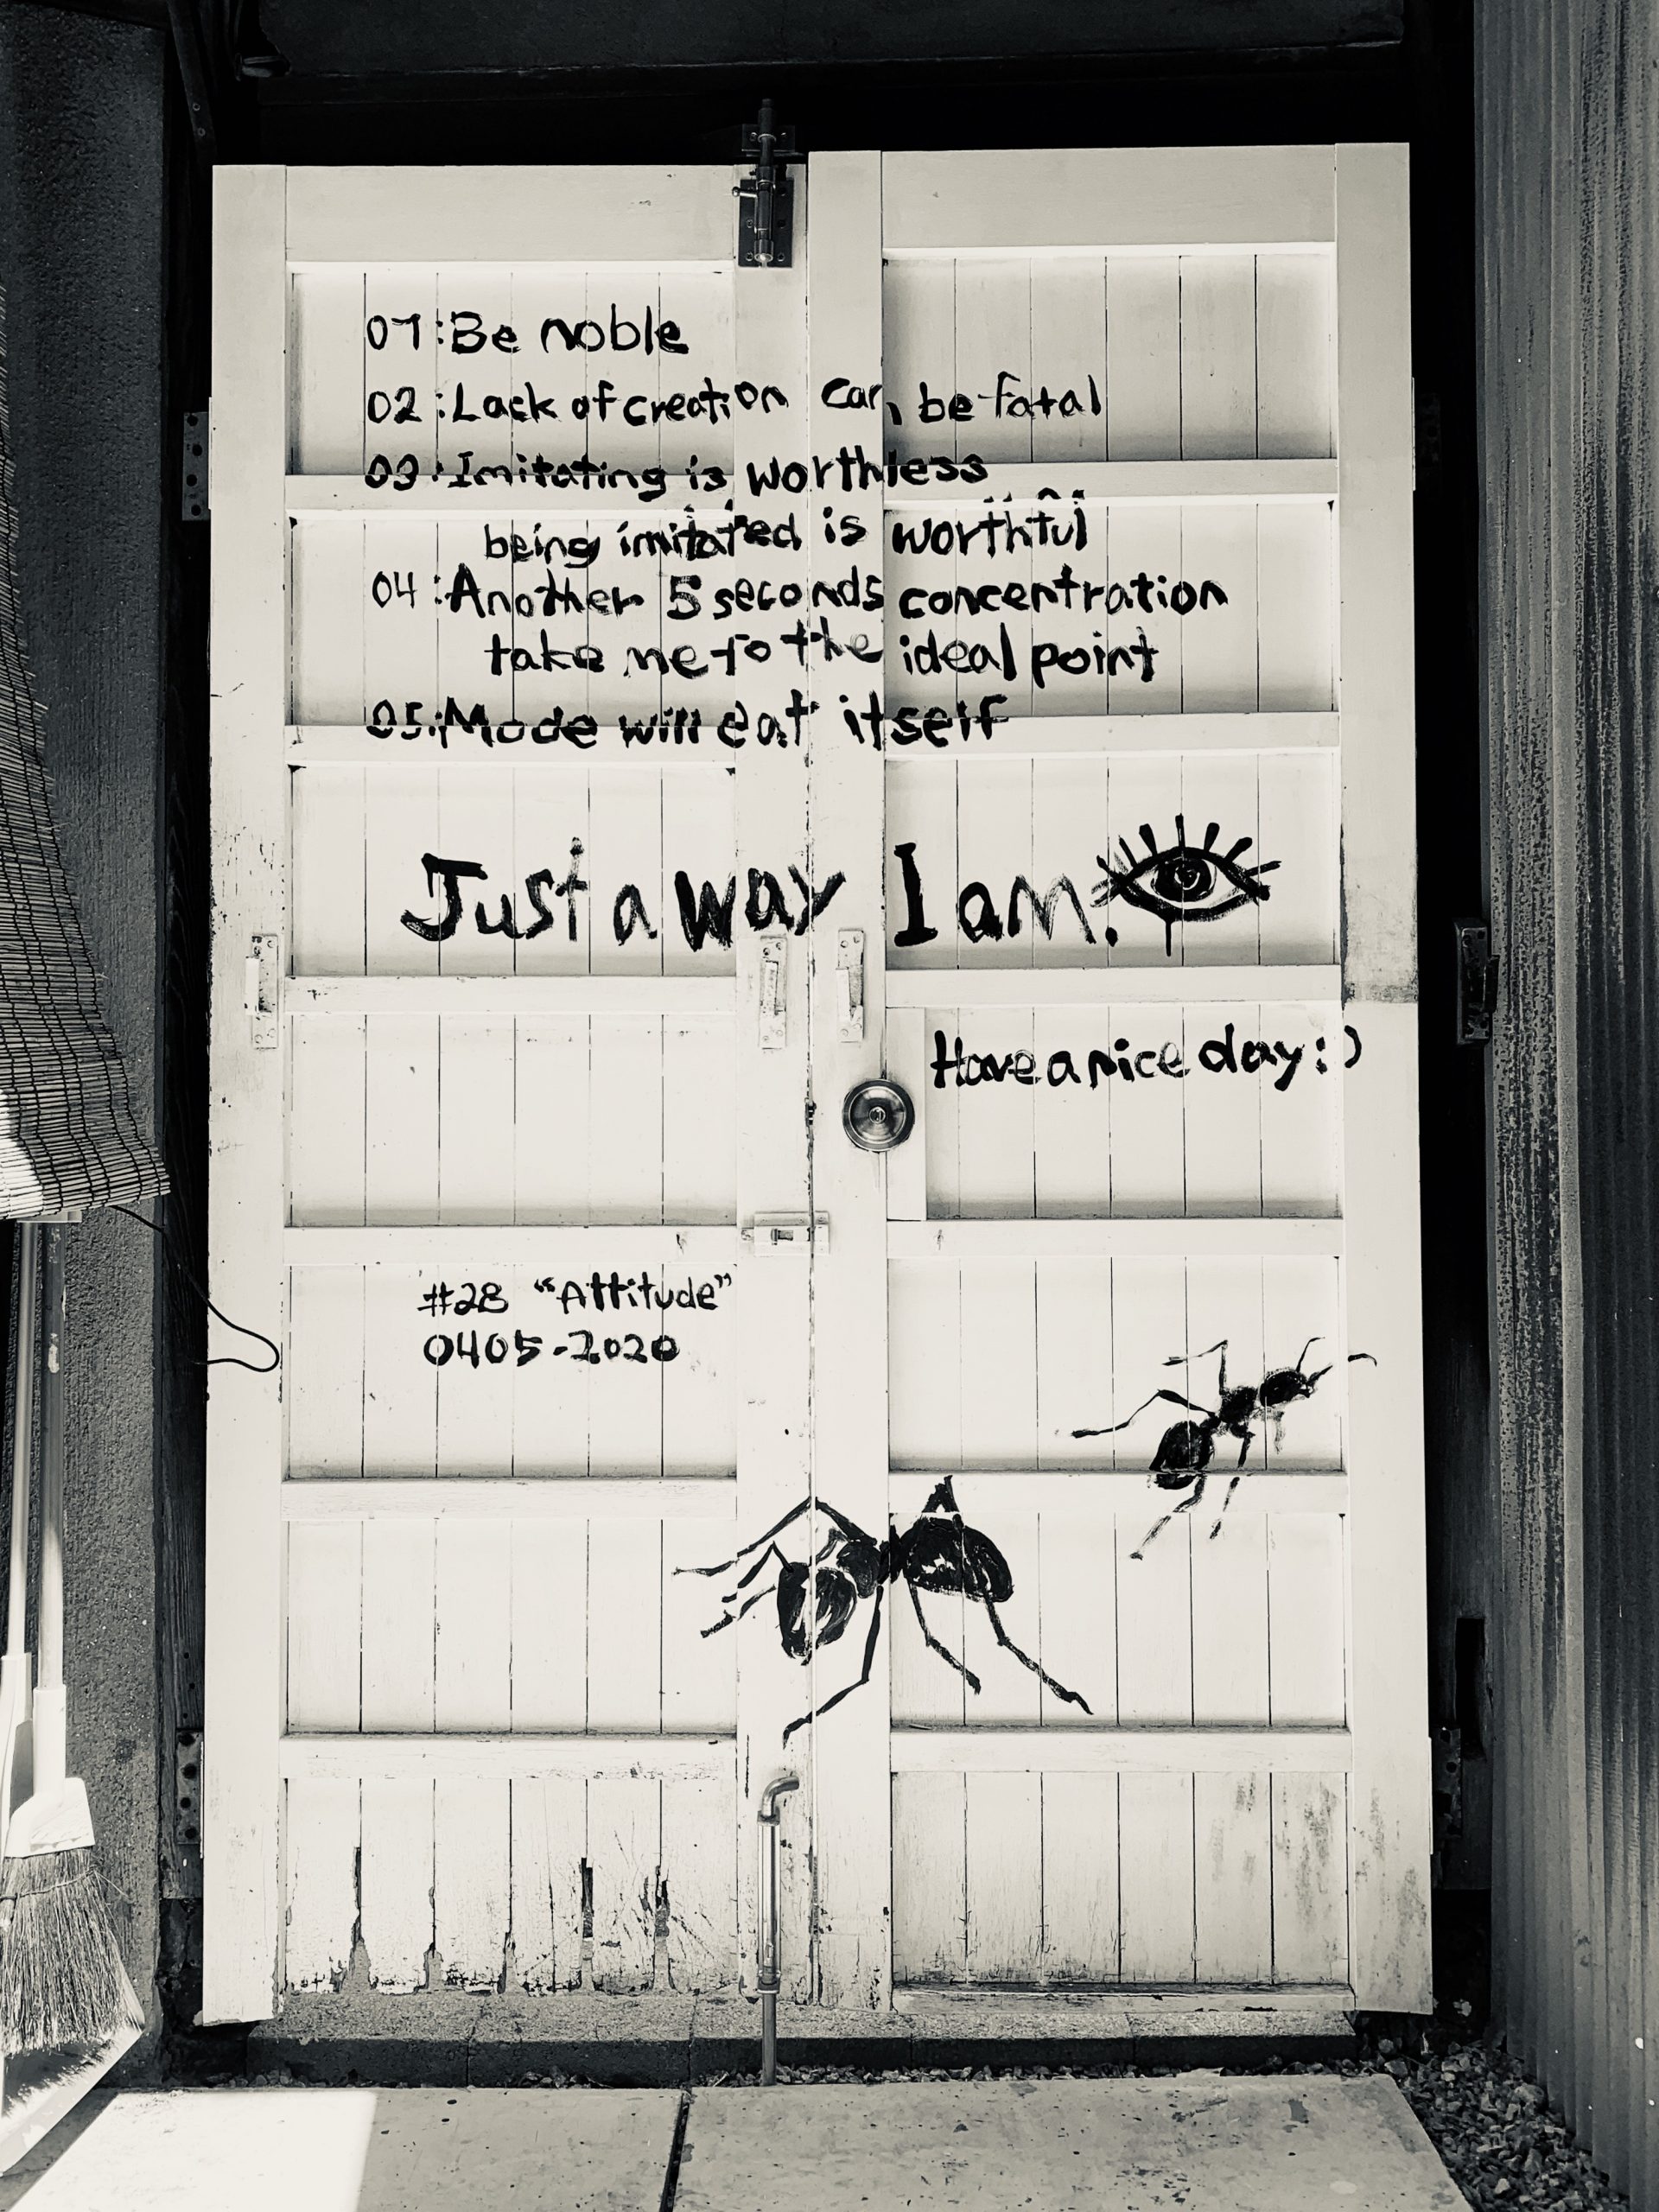 01:Be noble
02:Lack of creation can be fatal
03:Imitating is worthless
being imitated is worthful
04:Another 5 seconds concentration
take me to the ideal point
05:Mode will eat itself
Just a way I am.
Have a nice day:)
#28 "Attitude"
0405-2020